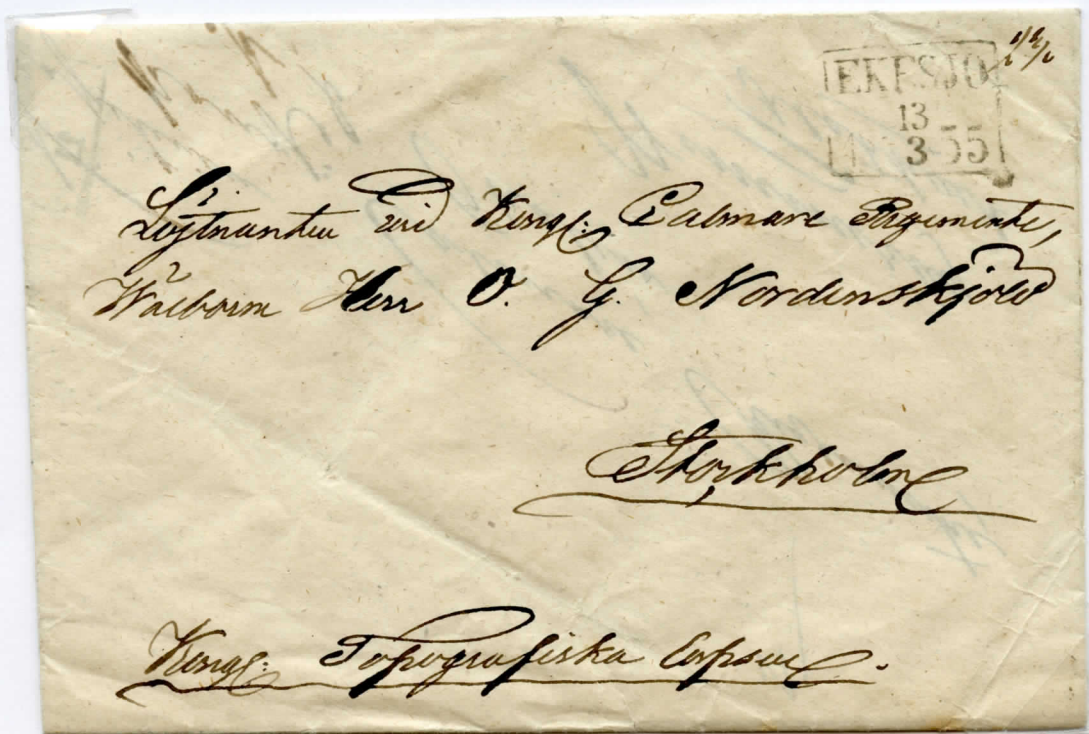 EKESJÖ
13
3 55
Löjtnanten vid Kongl: Calmare Regimente,
Wälborne Herr O. G. Nordenskjöld
Stockholm
Kongl: Topografiska Corpsen.